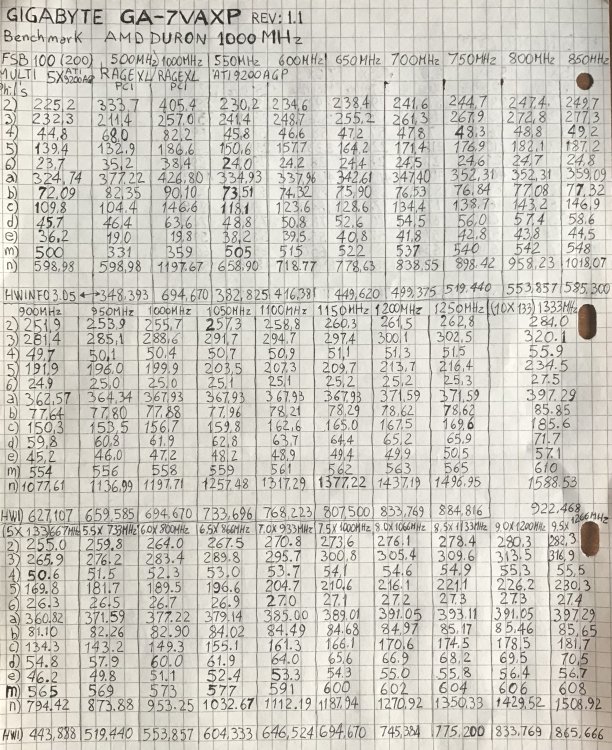 GIGABYTE GA-7VAXP REV: 1.1
Benchmark AMD DURON 1000 MHz
FSB 100 (200) 500MHz 1000MHz 550MHz 600MHz 650MHz 700MHz 750MHz 800MHz 850MHz
MULTI 5X ATI 9200AGP RAGEXL PCI RAGEXL PCI ATI9200AGP
Phil's
2) 225,2 333,7 405,4 230,2 234,6 238,4 241,6 244,7 247,4 249,7
3) 232,3 211,4 257,0 241,4 248,7 255,2 261,3 267,9 272,8 277,3
4) 44,8 68,0 82,2 45,8 46,6 47,2 47,8 48,3 48,8 49,2
5) 139,4 132,9 186,6 150,6 157,7 164,2 171,4 176,9 182,1 187,2
6) 23,7 35,2 38,4 24,0 24,2 24,4 24,5 24,6 24,7 24,8
a) 324,74 377,22 426,80 334,93 337,96 342,61 347,40 352,31 352,31 359,09
b) 72,09 82,35 90,10 73,51 74,32 75,90 76,53 76,84 77,08 77,32
c) 109,8 104,4 146,6 118,1 123,6 128,6 134,4 138,7 143,2 146,9
d) 45,7 46,4 63,6 48,8 50,8 52,6 54,5 56,0 57,4 58,6
e) 36,2 19,0 19,8 38,2 39,5 40,8 41,8 42,8 43,8 44,5
m) 500 331 359 505 515 522 537 540 542 548
n) 598,98 598,98 1197,67 658,90 718,77 778,63 838,55 898,42 958,23 1018,07
HWINFO 3.05 ↔ 348,393 694,670 382,825 416,381 449,620 499,375 519,440 553,857 585,300
900MHz 950MHz 1000MHz 1050MHz 1100MHz 1150MHz 1200MHz 1250MHz (10X133) 1333MHz
2) 251,9 253,9 255,7 257,3 258,8 260,3 261,5 262,8 284,0
3) 281,4 285,1 288,6 291,7 294,7 297,4 300,1 302,5 320,1
4) 49,7 50,1 50,4 50,7 50,9 51,1 51,3 51,5 55,9
5) 191,9 196,0 199,9 203,5 207,3 209,7 213,7 216,4 234,5
6) 24,9 25,0 25,0 25,1 25,1 25,2 25,2 25,3 27,5
a) 362,57 364,34 367,93 367,93 367,93 367,93 371,59 371,59 397,29
b) 77,64 77,80 77,88 77,96 78,21 78,29 78,62 78,62 85,85
c) 150,3 153,5 156,7 159,8 162,6 165,0 167,5 169,6 185,6
d) 59,8 60,8 61,9 62,8 63,7 64,4 65,2 65,9 71,7
e) 45,2 46,0 47,2 48,2 48,9 49,4 49,9 50,5 57,1
m) 554 556 558 559 561 562 563 565 610
n) 1077,61 1136,99 1197,71 1257,48 1317,29 1377,22 1437,19 1496,95 1588,53
HWI) 627,107 659,585 694,670 733,696 768,223 807,500 833,769 884,816 922,468
(5X133)667MHz 5.5X 733MHz 6.0X 800MHz 6.5X 866MHz 7.0X 933MHz 7.5X 1000MHz 8.0X 1066MHz 8.5X 1133MHz 9.0X 1200MHz 9.5X 1266MHz
2) 255,0 259,8 264,0 267,5 270,8 273,6 276,1 278,4 280,3 282,3
3) 265,9 276,2 283,4 289,8 295,7 300,8 305,4 309,6 313,5 316,9
4) 50,6 51,5 52,3 53,0 53,7 54,1 54,6 54,9 55,3 55,5
5) 169,8 181,7 189,5 196,6 204,7 210,6 216,1 221,1 226,2 230,3
6) 26,3 26,5 26,7 26,9 27,0 27,1 27,2 27,3 27,3 27,4
a) 360,82 371,59 377,22 379,14 385,00 389,01 391,05 393,11 391,05 397,29
b) 81,10 82,26 82,90 84,02 84,49 84,68 84,97 85,17 85,46 85,65
c) 134,3 143,2 149,3 155,1 161,3 166,1 170,6 174,5 178,5 181,7
d) 54,8 57,9 60,0 61,9 64,0 65,6 66,9 68,2 69,5 70,5
e) 46,2 49,8 51,1 52,4 53,3 54,3 55,0 55,8 56,4 56,7
m) 565 569 573 577 591 600 602 604 606 608
n) 794,42 873,88 953,25 1032,67 1112,19 1187,94 1270,92 1350,33 1429,52 1508,92
HWI) 443,888 519,440 553,857 604,333 646,524 694,670 745,384 775,200 833,769 865,666